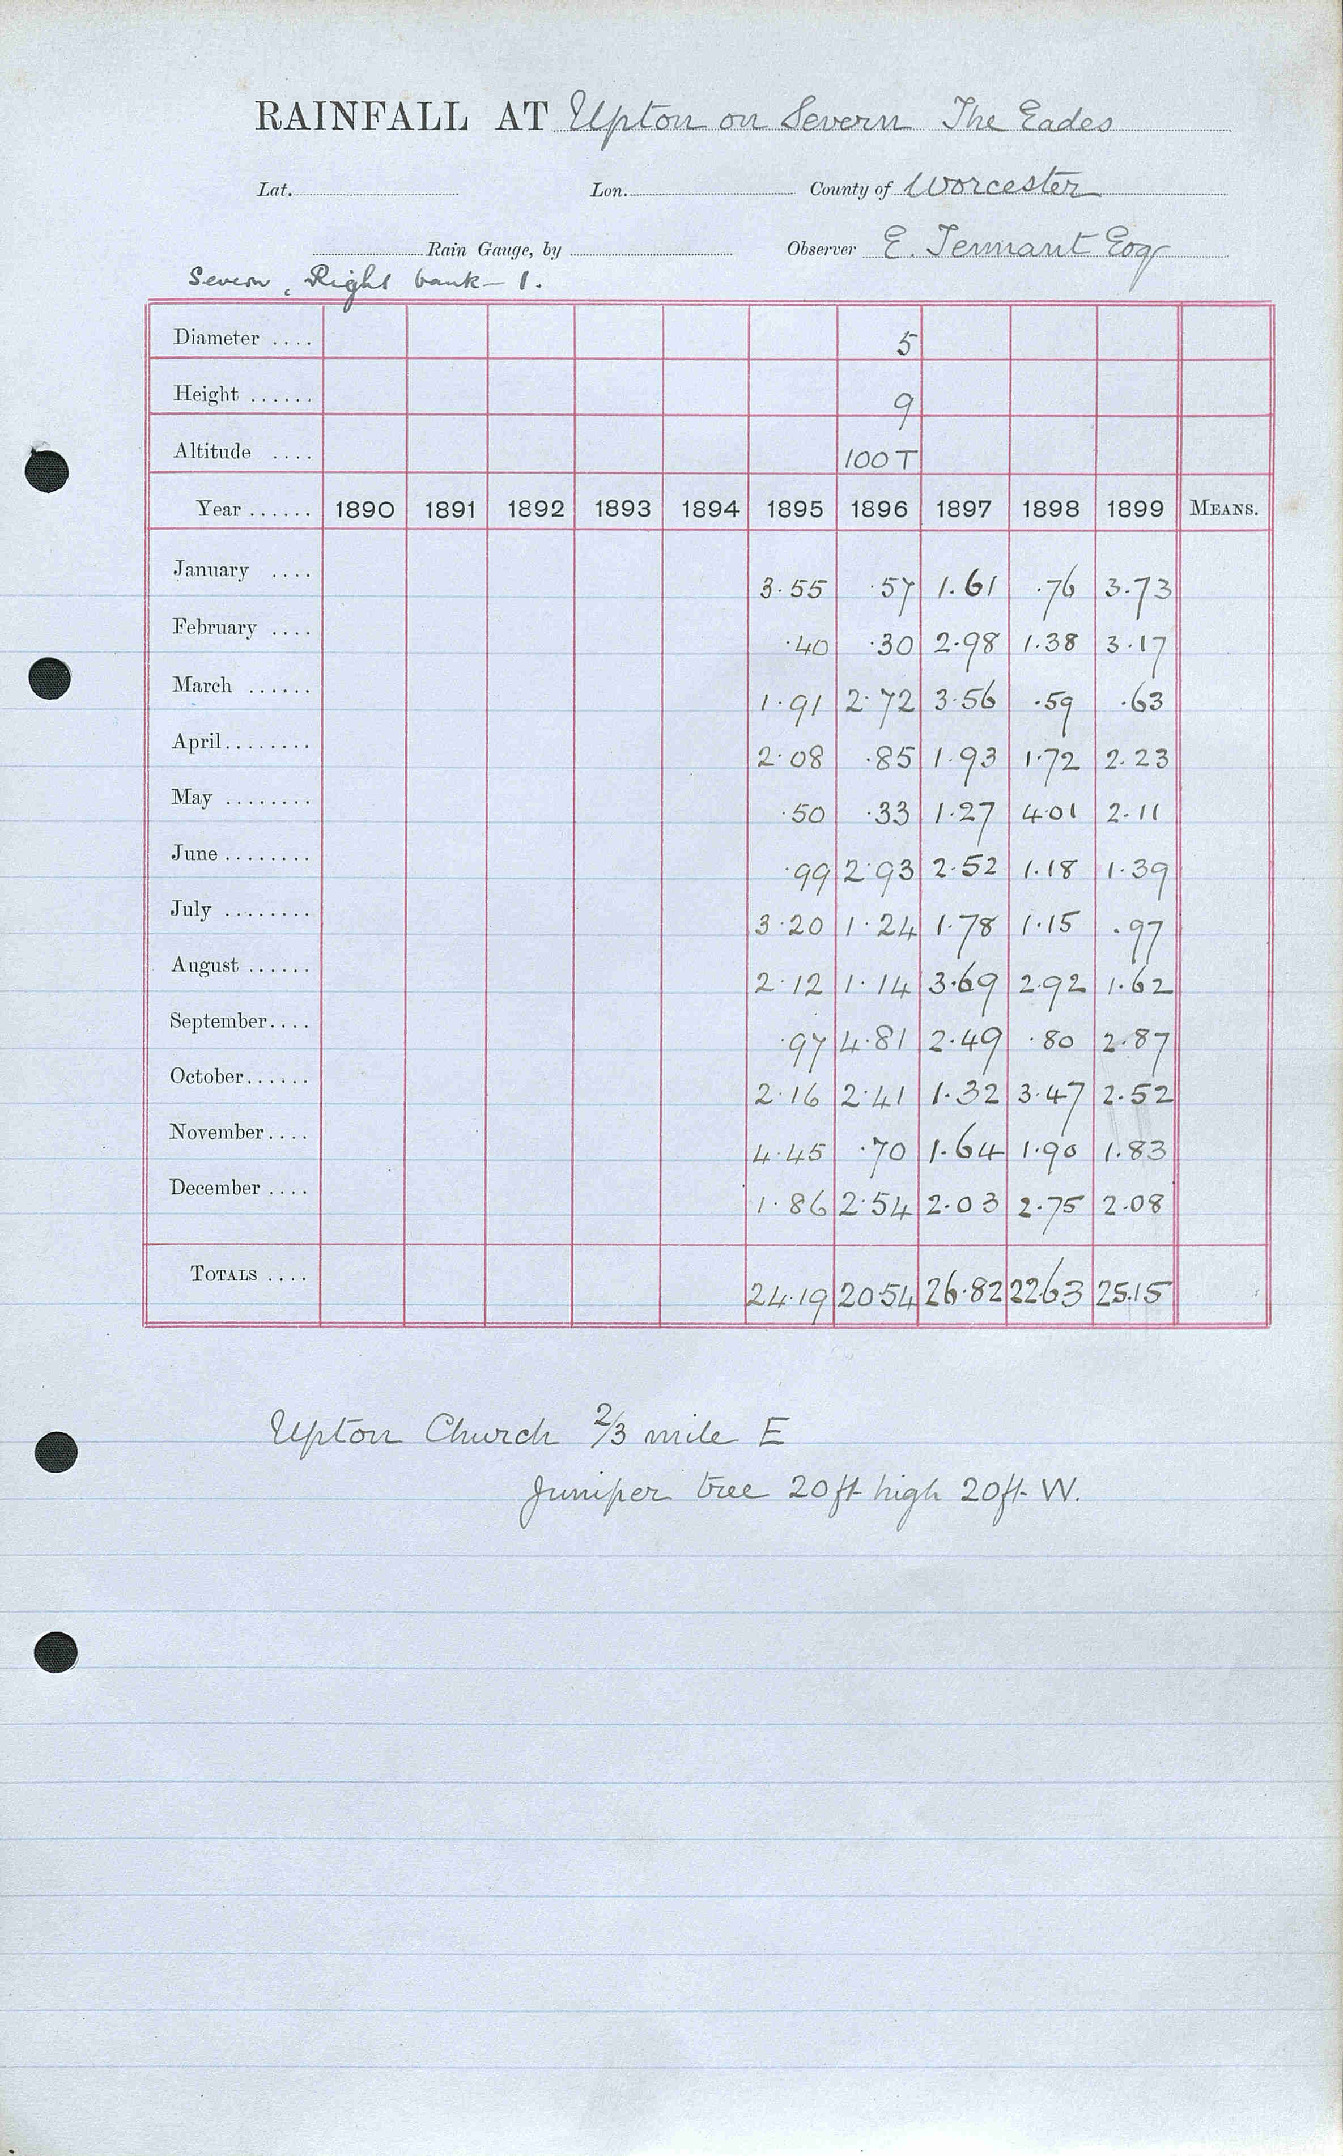 RAINFALL AT Upton on Severn The Eades
Lat. Lon. County of Worcester
Rain Gauge, by Observer E. Tennant Esq
Severn, Right bank - 1.
Diameter .... 5
Height ...... 9
Altitude .... 100 T
Year ...... 1890 1891 1892 1893 1894 1895 1896 1897 1898 1899 MEANS.
January .... 3.55 .57 1.61 .76 3.73
February .... .40 .30 2.98 1.38 3.17
March ...... 1.91 2.72 3.56 .59 .63
April........ 2.08 .85 1.93 1.72 2.23
May ........ .50 .33 1.27 4.01 2.11
June ........ .99 2.93 2.52 1.18 1.39
July ........ 3.20 1.24 1.78 1.15 .97
August ...... 2.12 1.14 3.69 2.92 1.62
September.... .97 4.81 2.49 .80 2.87
October...... 2.16 2.41 1.32 3.47 2.52
November.... 4.45 .70 1.64 1.90 1.83
December .... 1.86 2.54 2.03 2.75 2.08
TOTALS .... 24.19 20.54 26.82 22.63 25.15
Upton Church 2/3 mile E
Juniper tree 20ft high 20ft W.